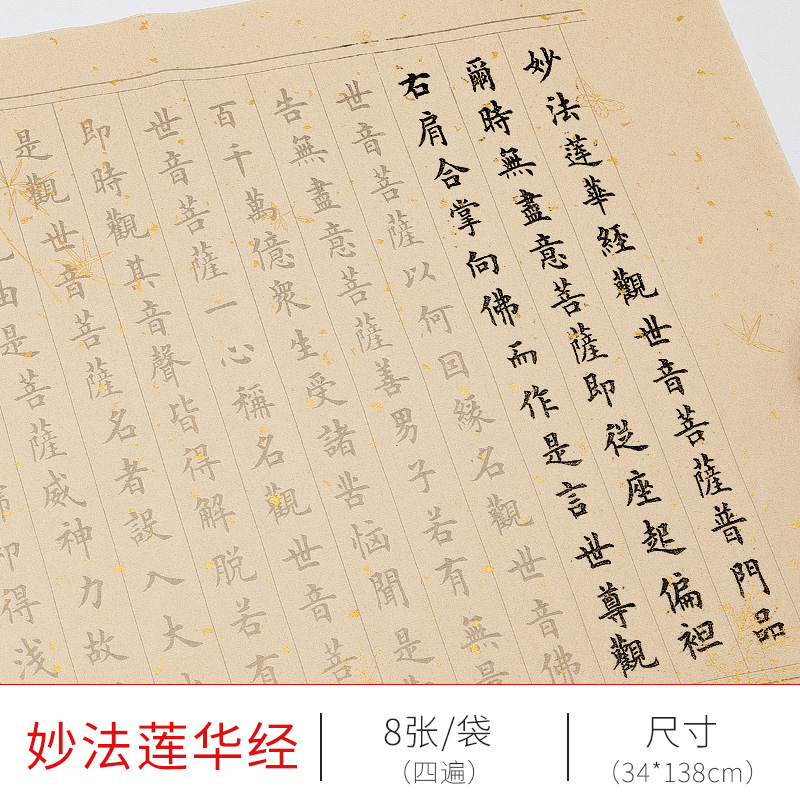 妙法蓮華經觀世音菩薩普門品
爾時無盡意菩薩即從座起偏袒
右肩合掌向佛而作是言世尊觀
世音菩薩以何因緣名觀世音佛
告無盡意菩薩善男子若有無
百千萬億衆生受諸苦惱聞是
世音菩薩一心稱名觀世音菩
即時觀其音聲皆得解脫若有
是觀世音菩薩名者設入大
由是菩薩威神力故
即得淺
妙法莲华经
8张/袋
（四遍）
尺寸
（34*138cm）